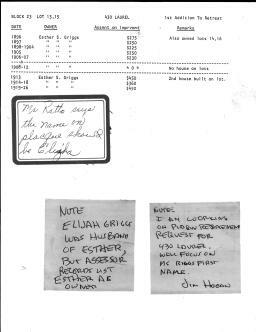 BLOCK 23 LOT 13,15 430 LAUREL 1st Addition To Retreat
DATE OWNER Assessed on Improvement Remarks
1896 Esther S. Griggs $275 Also owned lots 14,16
1897 " " " $250
1898-1904 " " " $225
1905 " " " $250
1906-07 " " " $230
1908-12 " " " 0 0 0 No house on lots
1913 Esther S. Griggs $450 2nd house built on lot.
1914-18 " " " $360
1919-26 " " " $450
Mr Ratto says
the name on
plaque should
be Elijha
NOTE
ELIJAH GRIGGS
WAS HUSBAND
OF ESTHER,
BUT ASSESSOR
RECORDS LIST
ESTHER AS
OWNER
NOTE:
I AM WORKING
ON PLAQUE REPLACEMENT
REQUEST FOR
430 LAUREL.
WILL FOCUS ON
MR GRIGGS FIRST
NAME.
Jim Hogan